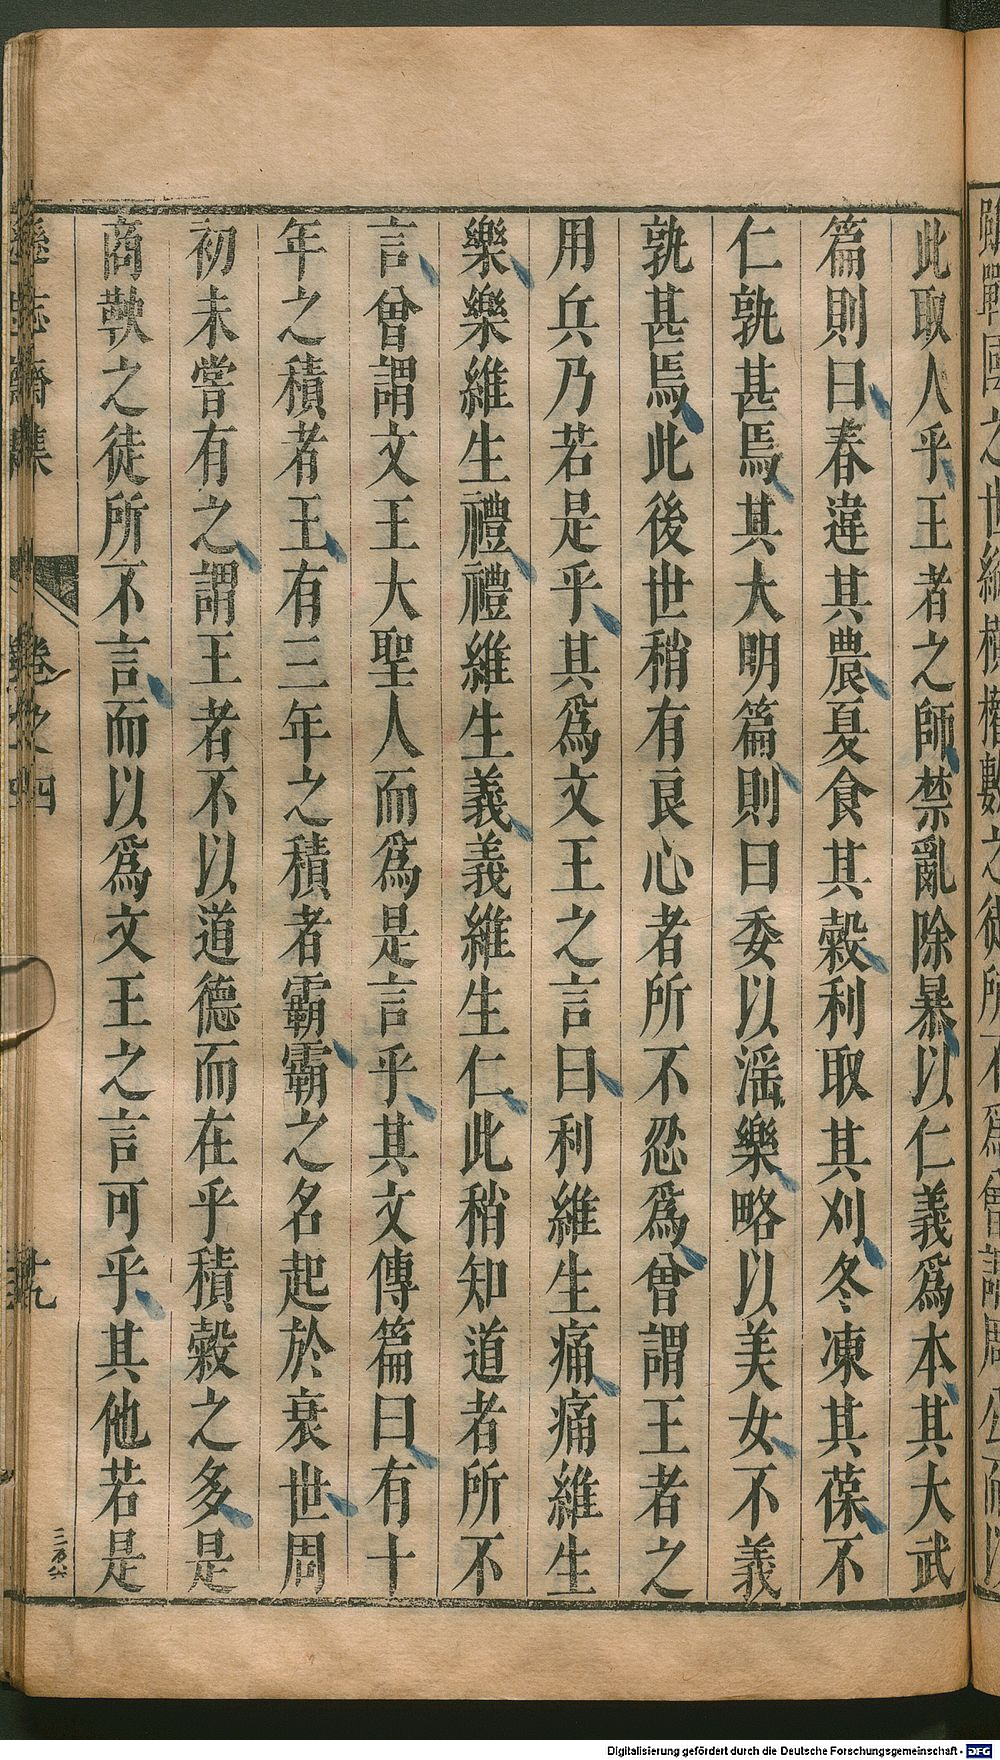 此取人乎王者之師禁亂除暴以仁義爲本其大武
篇則曰春違其農夏食其穀利取其刈冬凍其葆不
仁孰甚焉其大明篇則曰委以滛樂略以美女不義
孰甚焉此後世稍有良心者所不忍爲曾謂王者之
用兵乃若是乎其爲文王之言曰利維生痛痛維生
樂樂維生禮禮維生義義維生仁此稍知道者所不
言曾謂文王大聖人而爲是言乎其文傳篇曰有十
年之積者王有三年之積者霸霸之名起於衰世周
初未嘗有之謂王者不以道德而在乎積穀之多是
商鞅之徒所不言而以爲文王之言可乎其他若是
遜志齋集
卷之四
十九
Digitalisierung gefördert durch die Deutsche Forschungsgemeinschaft - DFG